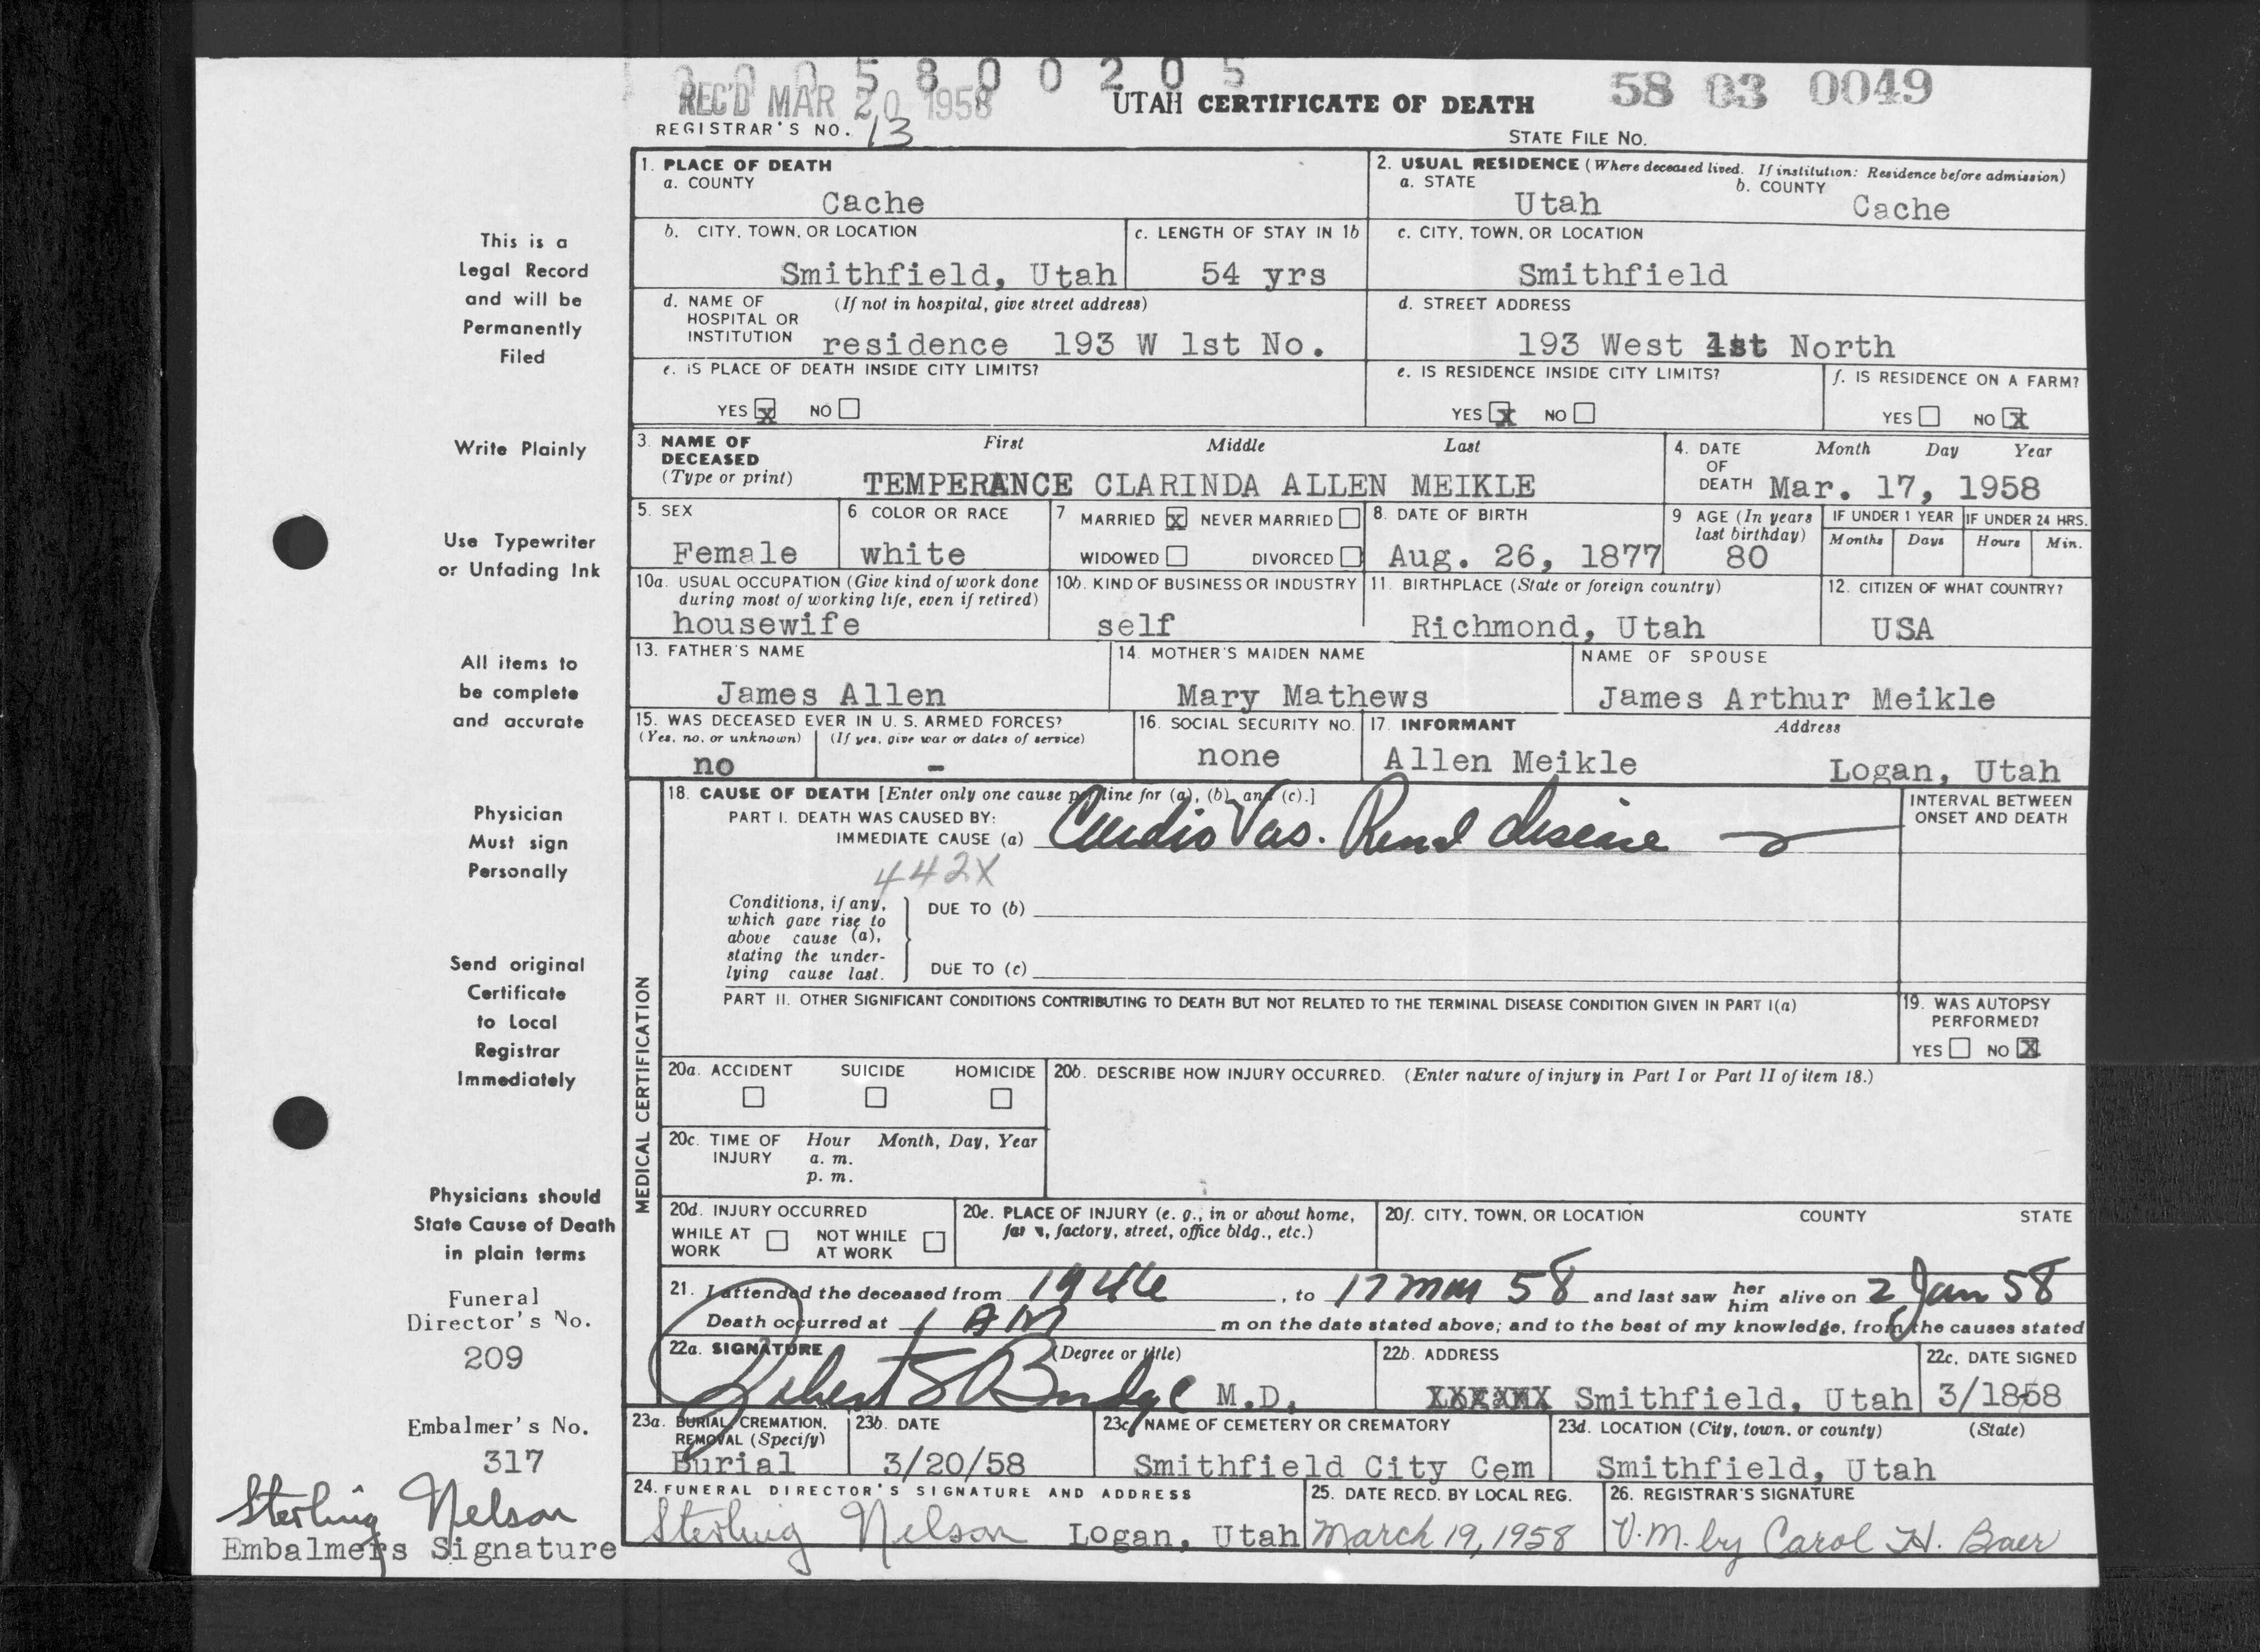 0005800205
REC'D MAR 20 1958
UTAH CERTIFICATE OF DEATH
58 03 0049
REGISTRAR'S NO. 13
STATE FILE NO.
1. PLACE OF DEATH
a. COUNTY
Cache
2. USUAL RESIDENCE (Where deceased lived. If institution: Residence before admission)
a. STATE
Utah
b. COUNTY
Cache
b. CITY, TOWN, OR LOCATION
Smithfield, Utah
c. LENGTH OF STAY IN 1b
54 yrs
c. CITY, TOWN, OR LOCATION
Smithfield
d. NAME OF HOSPITAL OR INSTITUTION
(If not in hospital, give street address)
residence 193 W 1st No.
d. STREET ADDRESS
193 West 1st North
e. IS PLACE OF DEATH INSIDE CITY LIMITS?
YES x NO
e. IS RESIDENCE INSIDE CITY LIMITS?
YES x NO
f. IS RESIDENCE ON A FARM?
YES NO X
3. NAME OF DECEASED
(Type or print)
First Middle Last
TEMPERANCE CLARINDA ALLEN MEIKLE
4. DATE OF DEATH
Month Day Year
Mar. 17, 1958
5. SEX
Female
6 COLOR OR RACE
white
7 MARRIED X NEVER MARRIED
WIDOWED DIVORCED
8. DATE OF BIRTH
Aug. 26, 1877
9 AGE (In years last birthday)
80
IF UNDER 1 YEAR
Months Days
IF UNDER 24 HRS.
Hours Min.
10a. USUAL OCCUPATION (Give kind of work done during most of working life, even if retired)
housewife
10b. KIND OF BUSINESS OR INDUSTRY
self
11. BIRTHPLACE (State or foreign country)
Richmond, Utah
12. CITIZEN OF WHAT COUNTRY?
USA
13. FATHER'S NAME
James Allen
14. MOTHER'S MAIDEN NAME
Mary Mathews
NAME OF SPOUSE
James Arthur Meikle
15. WAS DECEASED EVER IN U. S. ARMED FORCES?
(Yes, no, or unknown) (If yes, give war or dates of service)
no -
16. SOCIAL SECURITY NO.
none
17. INFORMANT
Address
Allen Meikle Logan, Utah
MEDICAL CERTIFICATION
18. CAUSE OF DEATH [Enter only one cause per line for (a), (b), and (c).]
PART I. DEATH WAS CAUSED BY:
IMMEDIATE CAUSE (a) Cardio Vas. Renal disease
442X
INTERVAL BETWEEN ONSET AND DEATH
Conditions, if any, which gave rise to above cause (a), stating the underlying cause last.
DUE TO (b)
DUE TO (c)
PART II. OTHER SIGNIFICANT CONDITIONS CONTRIBUTING TO DEATH BUT NOT RELATED TO THE TERMINAL DISEASE CONDITION GIVEN IN PART I(a)
19. WAS AUTOPSY PERFORMED?
YES NO X
20a. ACCIDENT SUICIDE HOMICIDE
20b. DESCRIBE HOW INJURY OCCURRED. (Enter nature of injury in Part I or Part II of item 18.)
20c. TIME OF INJURY
Hour Month, Day, Year
a. m.
p. m.
20d. INJURY OCCURRED
WHILE AT WORK NOT WHILE AT WORK
20e. PLACE OF INJURY (e. g., in or about home, farm, factory, street, office bldg., etc.)
20f. CITY, TOWN, OR LOCATION COUNTY STATE
21. I attended the deceased from 1946, to 17 Mar 58 and last saw her him alive on 2 Jan 58
Death occurred at 1 AM m on the date stated above; and to the best of my knowledge, from the causes stated
22a. SIGNATURE
(Degree or title)
Robert S Budge M.D.
22b. ADDRESS
Smithfield, Utah
22c. DATE SIGNED
3/18-58
23a. BURIAL, CREMATION, REMOVAL (Specify)
Burial
23b. DATE
3/20/58
23c. NAME OF CEMETERY OR CREMATORY
Smithfield City Cem
23d. LOCATION (City, town, or county) (State)
Smithfield, Utah
24. FUNERAL DIRECTOR'S SIGNATURE AND ADDRESS
Sterling Nelson Logan, Utah
25. DATE RECD. BY LOCAL REG.
March 19, 1958
26. REGISTRAR'S SIGNATURE
V.M. by Carol H. Baer
This is a
Legal Record
and will be
Permanently
Filed
Write Plainly
Use Typewriter
or Unfading Ink
All items to
be complete
and accurate
Physician
Must sign
Personally
Send original
Certificate
to Local
Registrar
Immediately
Physicians should
State Cause of Death
in plain terms
Funeral
Director's No.
209
Embalmer's No.
317
Sterling Nelson
Embalmers Signature